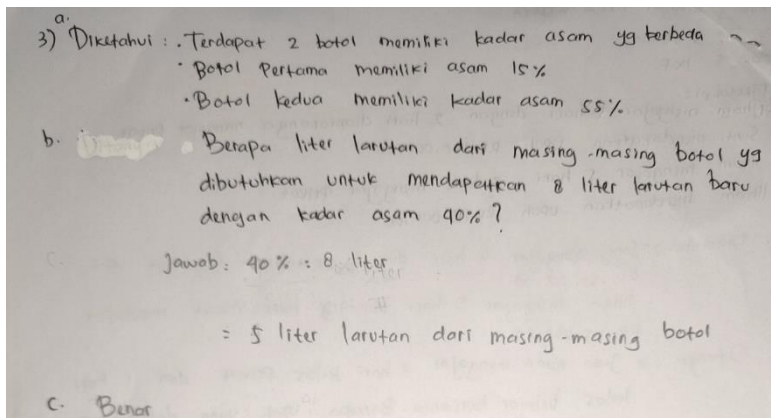 a.
3) Diketahui : . Terdapat 2 botol memiliki kadar asam yg berbeda
• Botol Pertama memiliki asam 15%
• Botol kedua memiliki kadar asam 55%
b. Berapa liter larutan dari masing-masing botol yg
dibutuhkan untuk mendapatkan 8 liter larutan baru
dengan kadar asam 40% ?
Jawab : 40% : 8 liter
= 5 liter larutan dari masing-masing botol
c. Benar